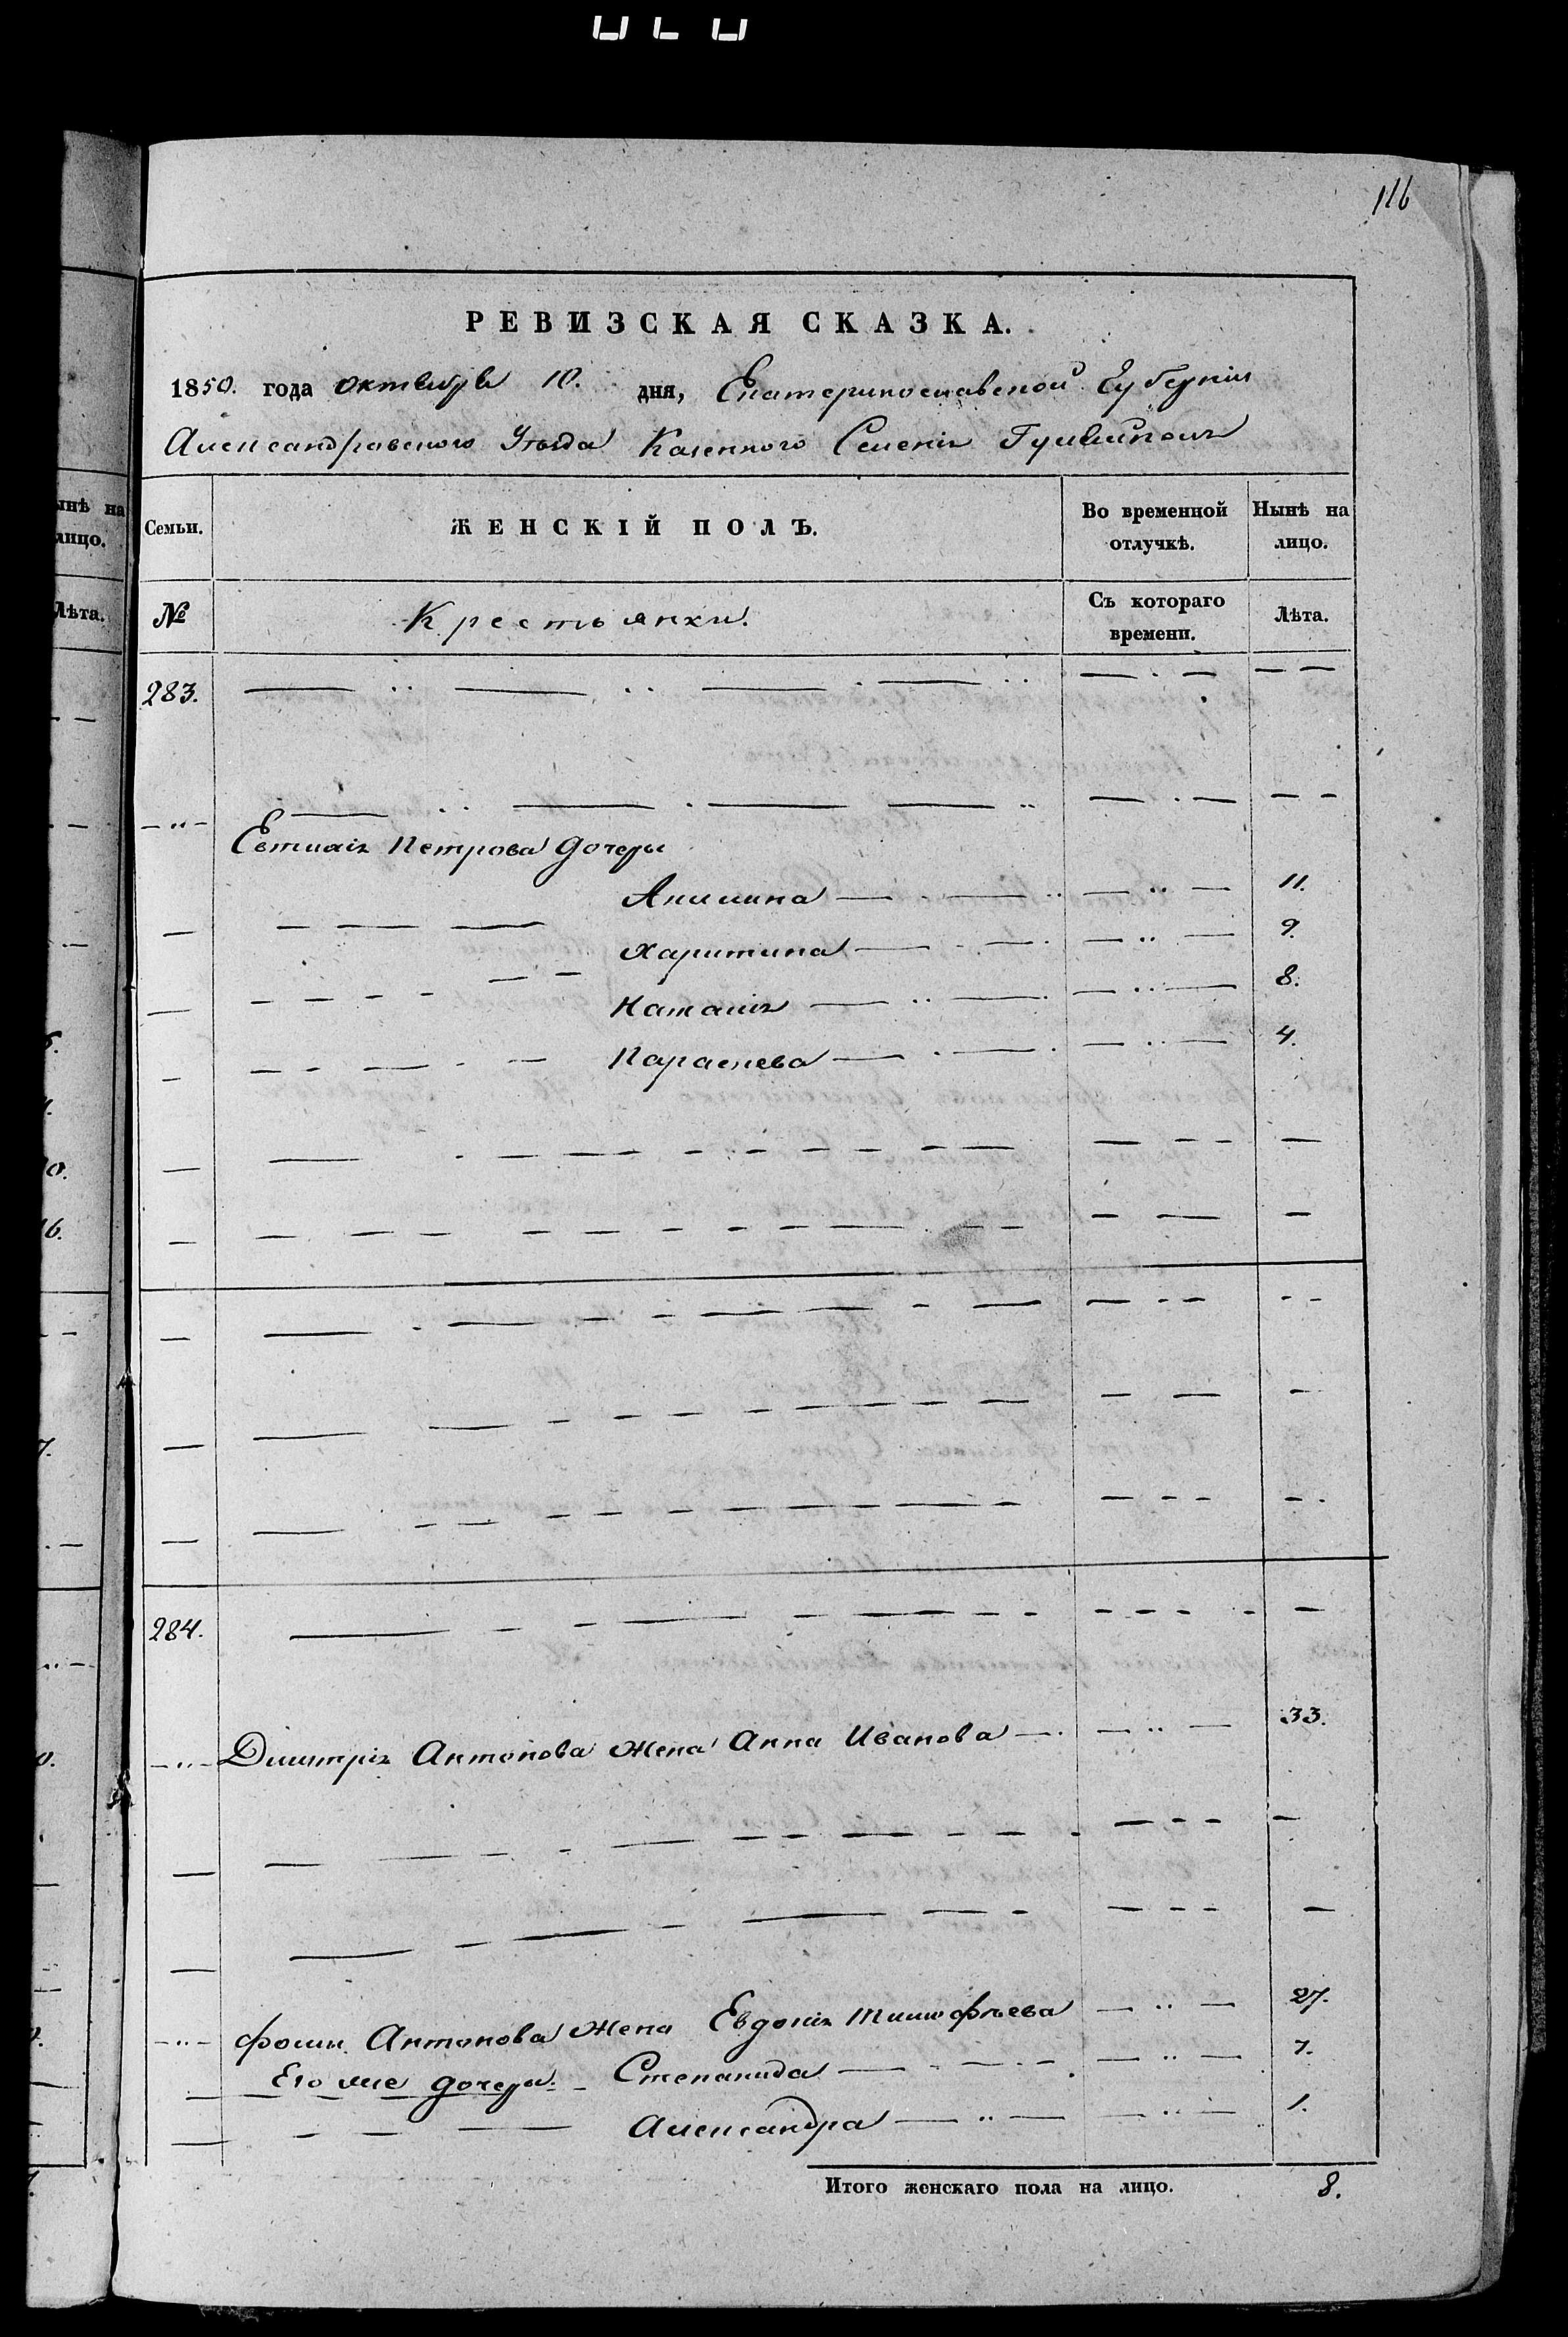 116
РЕВИЗСКАЯ СКАЗКА.
1850. года октября 10. дня, Екатеринославской Губернии
Александровскаго Уезда Казенного Селенія Гуляйполя
ынѣ на лицо.
Лѣта.
Семьи. ЖЕНСКІЙ ПОЛЪ. Во временной отлучкѣ. Нынѣ на лицо.
№ Крестьянки. Съ котораго времени. Лѣта.
283.
Евтихія Петрова дочери
Акилина 11.
Харитина 9.
Наталія 8.
Параскева 4.
284.
Димитрія Антонова жена Анна Иванова 33.
Фомы Антонова жена Евдокія Тимофѣева 27.
Его же дочери Степанида 7.
Александра 1.
Итого женскаго пола на лицо. 8.